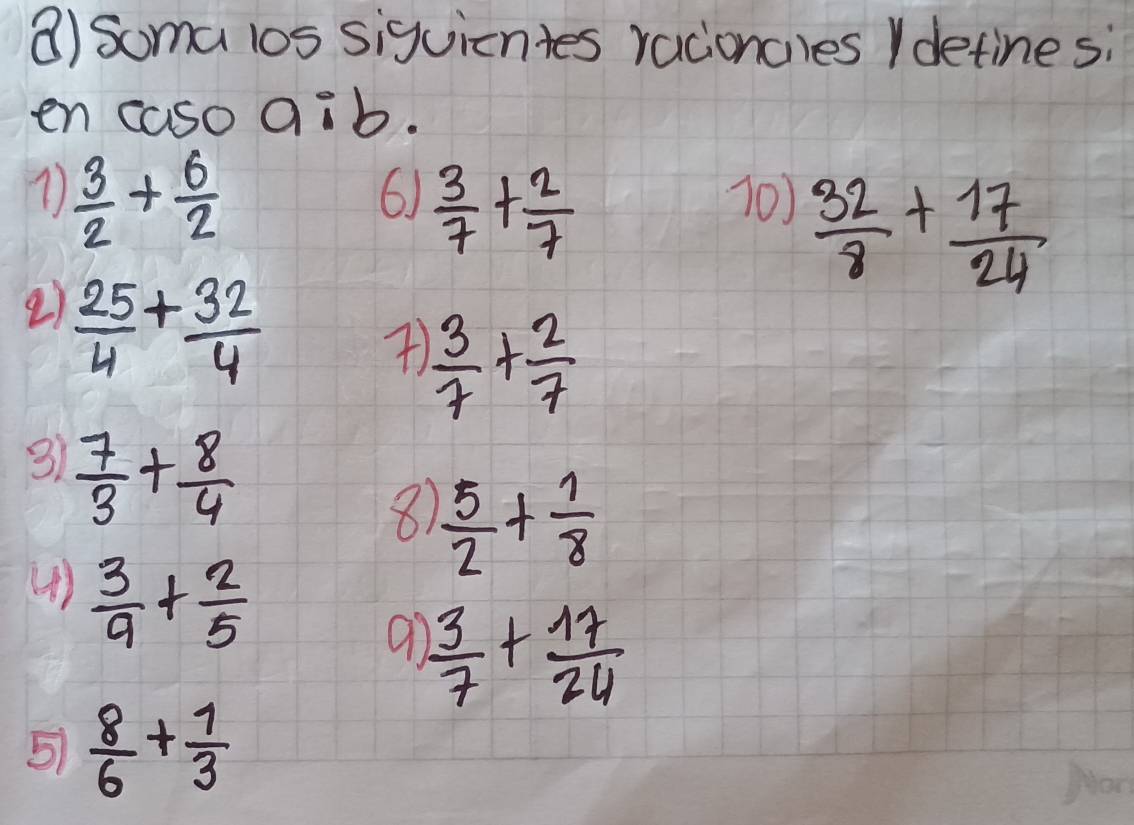 a) Soma los siguientes racionales y define si
en caso a i b.
1) 3/2 + 6/2
2) 25/4 + 32/4
3) 7/3 + 8/4
4) 3/9 + 2/5
5) 8/6 + 1/3
6) 3/7 + 2/7
7) 3/7 + 2/7
8) 5/2 + 1/8
9) 3/7 + 17/24
10) 32/8 + 17/24